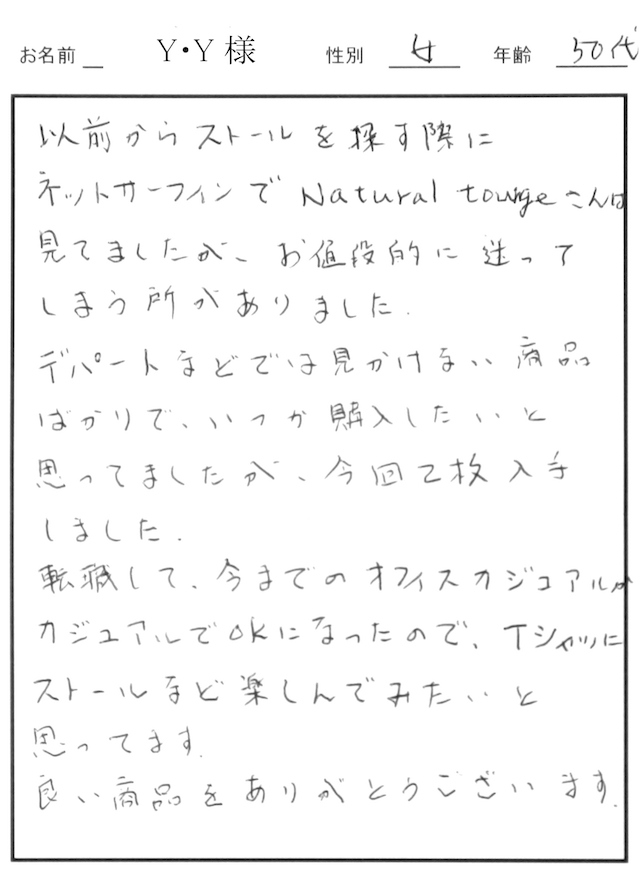 お名前 Y・Y 様 性別 女 年齢 50代
以前からストールを探す際に
ネットサーフィンで Natural toungeさんは
見てましたが、お値段的に迷って
しまう所がありました.
デパートなどでは見かけない商品
ばかりで、いつか購入したいと
思ってましたが、今回2枚入手
しました.
転職して、今までのオフィスカジュアルが
カジュアルでOKになったので、Tシャツに
ストールなど楽しんでみたいと
思ってます.
良い商品をありがとうございます.